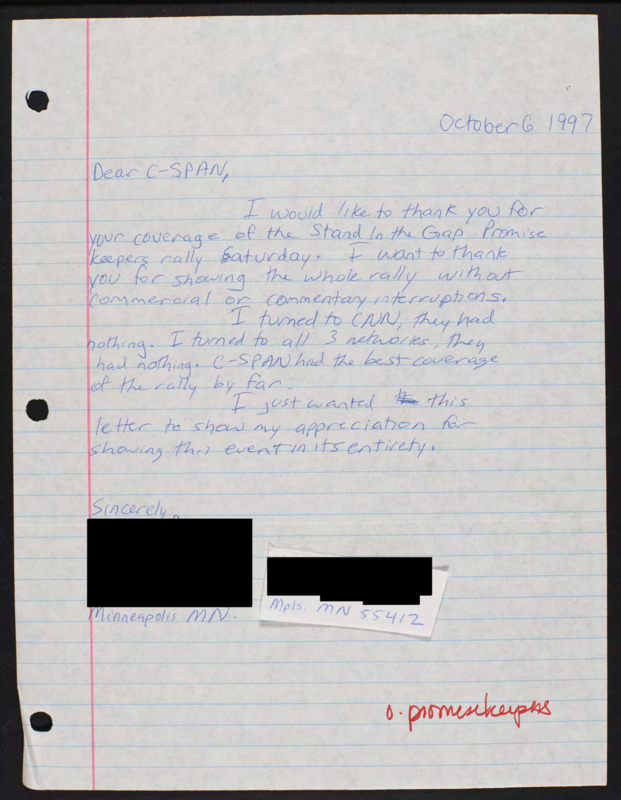 October 6 1997
Dear C-SPAN,
I would like to thank you for
your coverage of the Stand In the Gap Promise
keepers rally Saturday. I want to thank
you for showing the whole rally without
commercial or commentary interruptions.
I turned to CNN, they had
nothing. I turned to all 3 networks, they
had nothing. C-SPAN had the best coverage
of the rally by far.
I just wanted this
letter to show my appreciation for
showing this event in its entirety.
Sincerely,
Minneapolis MN.
Mpls. MN 55412
o. promisekeepers